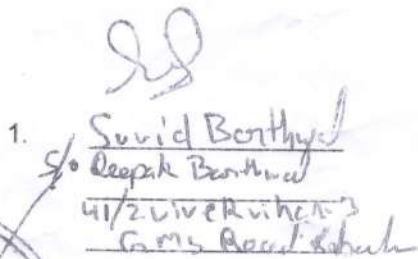 1. Suvid Barthwal
S/o Deepak Barthwal
41/2 Vivek Vihar-3
GMS Road